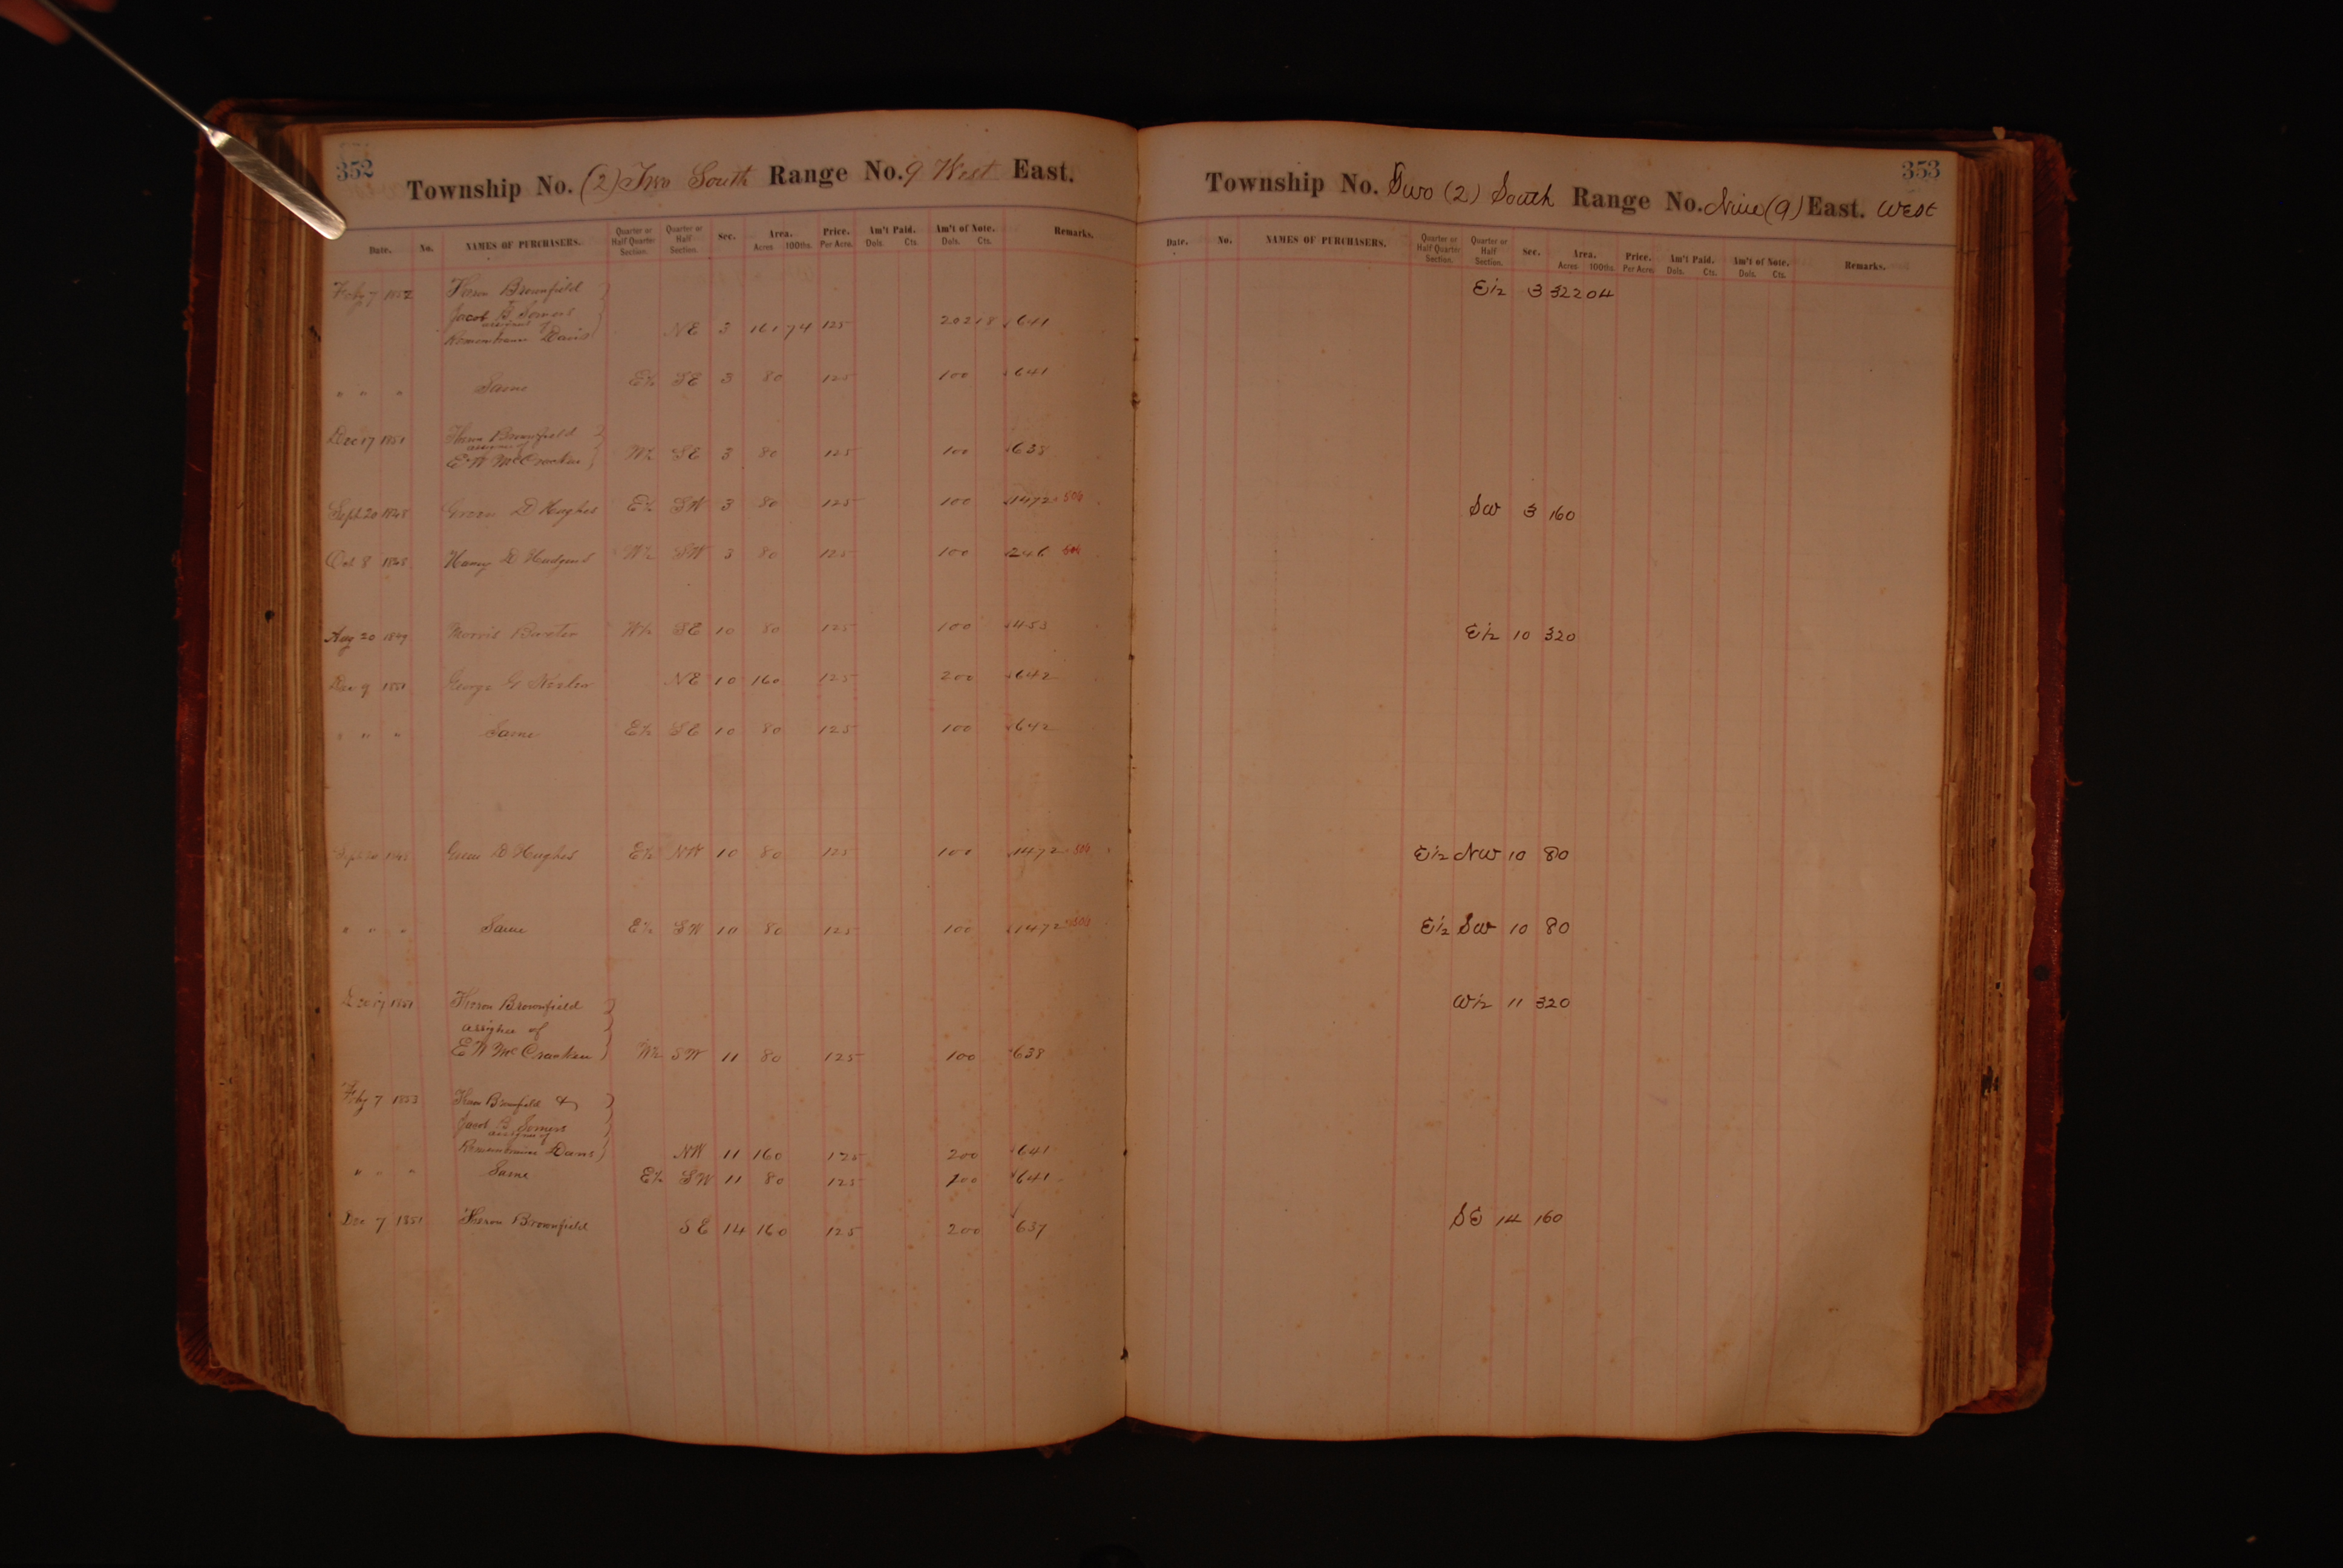 352
Township No. (2) Two South Range No. 9 West East.
Date. No. NAMES OF PURCHASERS. Quarter or Half Quarter Section. Quarter or Half Section. Sec. Area. Acres 100ths. Price. Per Acre. Am't Paid. Dols. Cts. Am't of Note. Dols. Cts. Remarks.
Feby 7 1852 Brownfield
Jacob B Somers
assignees of
Remembrance Davis NE 3 161 74 125 202 18 641
" " " Same E½ SE 3 80 125 100 641
Dec 17 1851 Brownfield
assignee of
E W McCracken W½ SE 3 80 125 100 638
Sept 20 1848 Green D Hughes E½ SW 3 80 125 100 1472 506
Oct 8 1848 W½ SW 3 80 125 100 246 506
Aug 20 1849 Morris W½ SE 10 80 125 100 453
Dec 9 1851 George G NE 10 160 125 200 642
" " " Same E½ SE 10 80 125 100 642
Sept 20 1848 Green D Hughes E½ NW 10 80 125 100 1472 506
" " " Same E½ SW 10 80 125 100 1472 506
Dec 17 1851 Brownfield
assignee of
E W McCracken W½ SW 11 80 125 100 638
Feby 7 1853 Brownfield &
Jacob B Somers
assignees of
Remembrance Davis NW 11 160 125 200 641
" " " Same E½ SW 11 80 125 100 641
Dec 7 1851 Brownfield SE 14 160 125 200 637
353
Township No. Two (2) South Range No. Nine (9) East. West
Date. No. NAMES OF PURCHASERS. Quarter or Half Quarter Section. Quarter or Half Section. Sec. Area. Acres 100ths. Price. Per Acre. Am't Paid. Dols. Cts. Am't of Note. Dols. Cts. Remarks.
E½ 3 322 04
SW 3 160
E½ 10 320
E½ NW 10 80
E½ SW 10 80
W½ 11 320
SE 14 160